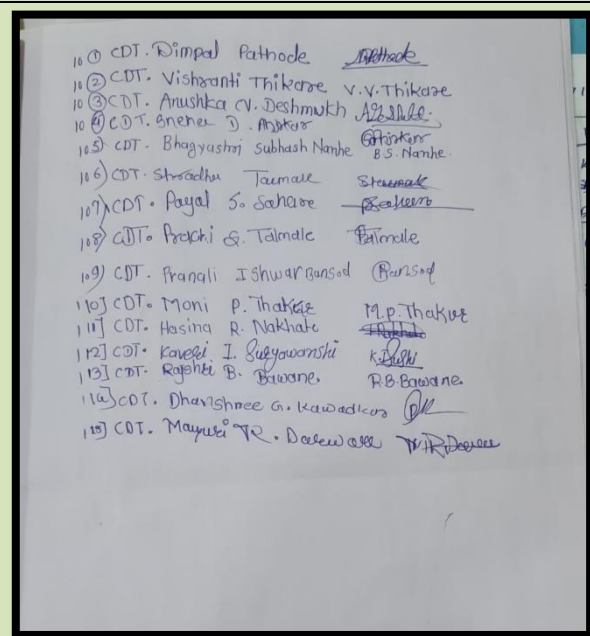 10 ① CDT. Dimpal Pathode
10 ② CDT. Vishranti Thikare V.V.Thikare
10 ③ CDT. Anushka V. Deshmukh
10 ④ CDT. D.
105) CDT. Bhagyashri Subhash Nanhe B.S. Nanhe.
106) CDT. Shradha Taimale
107) CDT. Payal S. Sahare
108) CDT. Prachi G. Talmale Talmale
109) CDT. Pranali Ishwar Bansod Bansod
110] CDT. Moni P. Thakur M.P. Thakur
111] CDT. Hasina R. Nakhate
112] CDT. Kaveri I. Suryawanshi
113] CDT. Rajshri B. Bawane. R.B.Bawane.
114) CDT. Dhanshree G. Kawadkar
115] CDT. Mayuri R.